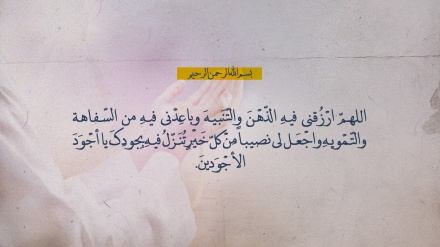 بسم الله الرحمن الرحیم
اللهمّ ارْزُقنی فیهِ الذّهْنَ والتّنبیهَ وباعِدْنی فیهِ من السّفاهة
والتّمْویهِ واجْعَل لی نصیباً مِنْ کلّ خَیْرٍ تُنَزّلُ فیهِ بِجودِکَ یا أجْوَدَ
الأجْوَدینَ.